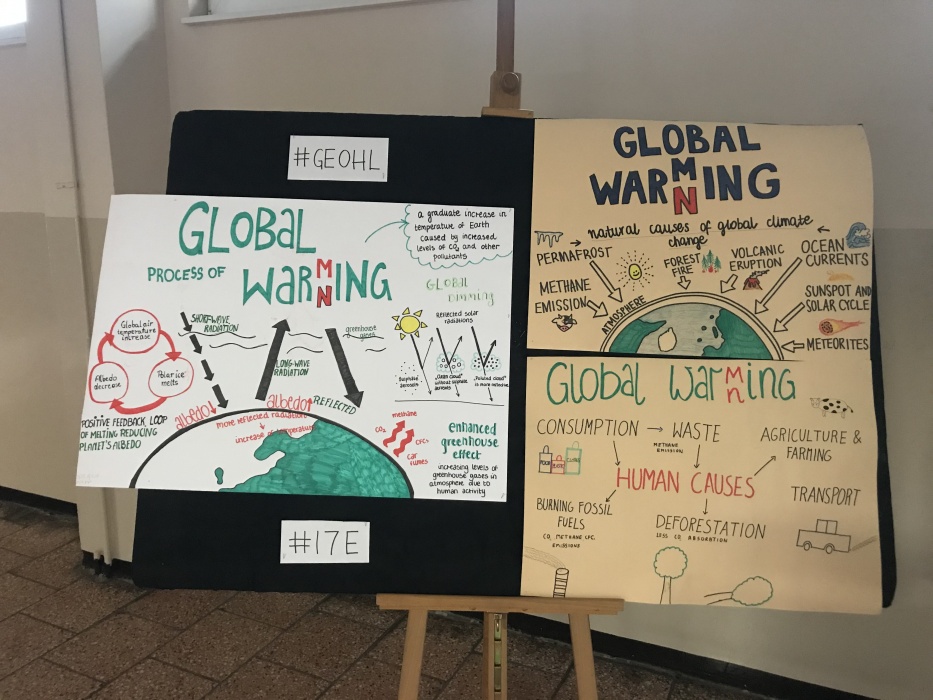 #GEOHL
GLOBAL
PROCESS OF
WARMING
N
a graduate increase in
temperature of Earth
caused by increased
levels of CO₂ and other
pollutants
Global air
temperature
increase
Albedo
decrease
Polar ice
melts
POSITIVE FEEDBACK LOOP
OF MELTING REDUCING
PLANET'S ALBEDO
SHORTWAVE
RADIATION
LONG-WAVE
RADIATION
greenhouse
gases
albedo↓
albedo↑
REFLECTED
more reflected radiation
↓
increase of temperature
GLOBAL
dimming
Reflected solar
radiations
"Clean cloud"
without sulphate
aerosols
"Polluted cloud"
is more reflective
methane
CO₂
CFCs
car
fumes
enhanced
greenhouse
effect
increasing levels of
greenhouse gases in
atmosphere due to
human activity
#17E
GLOBAL
WARMING
N
→ natural causes of global climate ←
change
PERMAFROST
METHANE
EMISSION
FOREST
FIRE
VOLCANIC
ERUPTION
OCEAN
CURRENTS
SUNSPOT AND
SOLAR CYCLE
METEORITES
ATMOSPHERE
Global warming
n
CONSUMPTION → WASTE
METHANE
EMISSION
AGRICULTURE &
FARMING
HUMAN CAUSES
BURNING FOSSIL
FUELS
CO₂ METHANE CFC
EMISSIONS
DEFORESTATION
LESS CO₂ ABSORATION
TRANSPORT